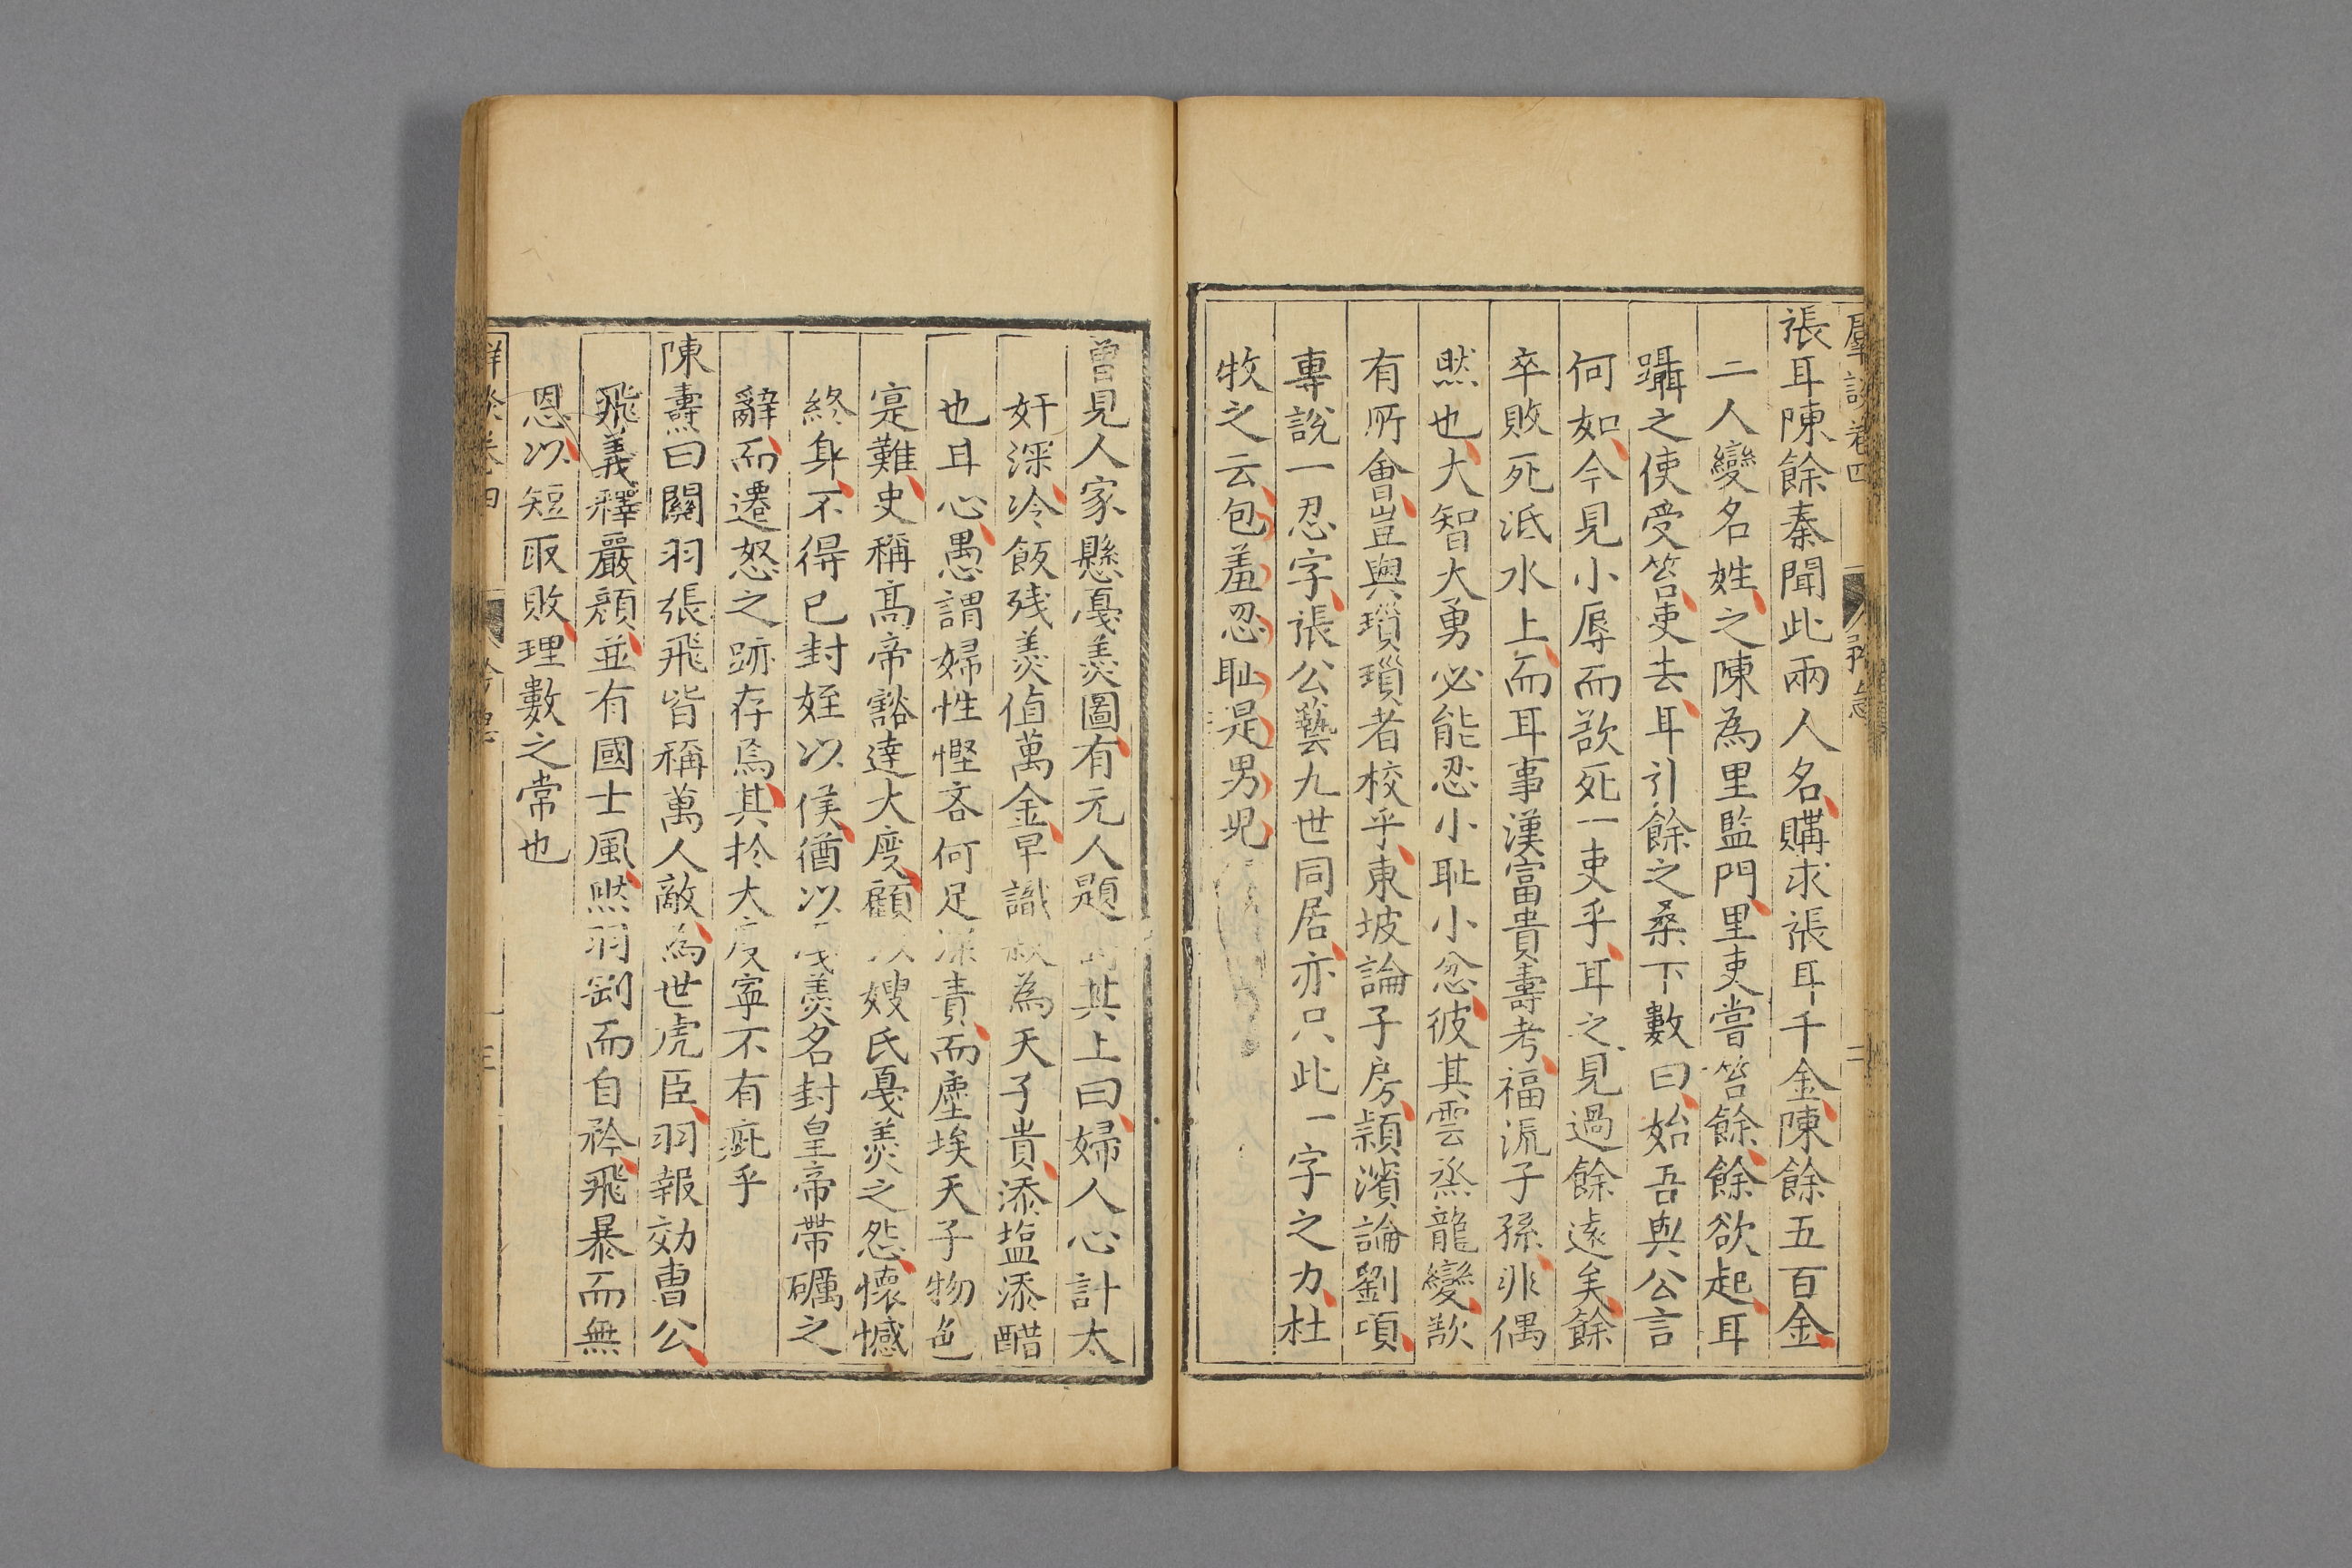 張耳陳餘秦聞此兩人名購求張耳千金陳餘五百金
二人變名姓之陳為里監門里吏嘗笞餘餘欲起耳
躡之使受笞吏去耳引餘之桑下數曰始吾與公言
何如今見小辱而欲死一吏乎耳之見過餘遠矣餘
卒敗死泜水上而耳事漢富貴壽考福流子孫非偶
然也大智大勇必能忍小恥小忿彼其雲蒸龍變欲
有所會豈與瑣瑣者校乎東坡論子房潁濱論劉項
專說一忍字張公藝九世同居亦只此一字之力杜
牧之云包羞忍耻是男兒
曾見人家懸戛羹圖有元人題其上曰婦人心計太
奸深冷飯残羹值萬金早識叔為天子貴添塩添醋
也耳心愚謂婦性慳吝何足深責而塵埃天子物色
寔難史稱髙帝豁達大度顧以嫂氏戛羹之怨懷憾
終身不得已封姪以侯猶以戛羹名封皇帝帶礪之
辭而遷怒之跡存焉其於大度寜不有疵乎
陳壽曰關羽張飛皆稱萬人敵為世虎臣羽報効曹公
飛義釋嚴顏並有國士風然羽剛而自矜飛暴而無
恩以短取敗理數之常也
群談卷四